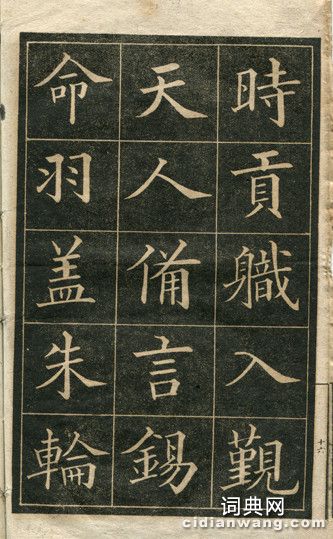 時貢軄入覲
天人備言錫
命羽盖朱輪
十六
词典网
cidianwang.com